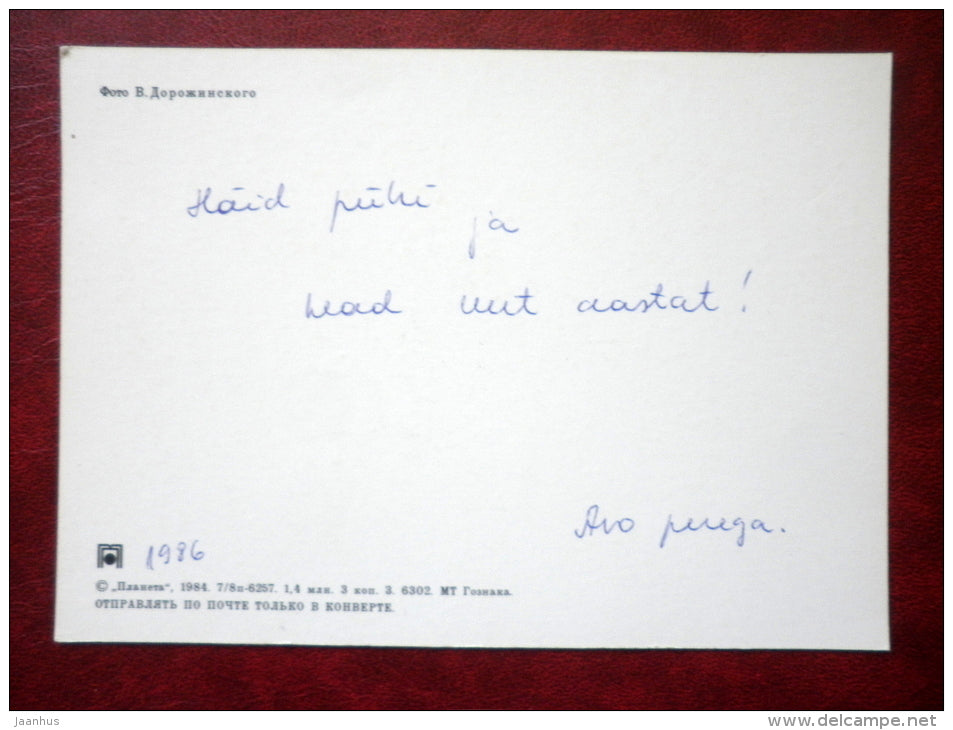 Фото В. Дорожинского
Häid pühi
ja
head uut aastat!
Avo perega.
1986
© „Планета“, 1984. 7/8п-6257. 1,4 млн. 3 коп. З. 6302. МТ Гознака.
ОТПРАВЛЯТЬ ПО ПОЧТЕ ТОЛЬКО В КОНВЕРТЕ.
jaanhus
www.delcampe.net